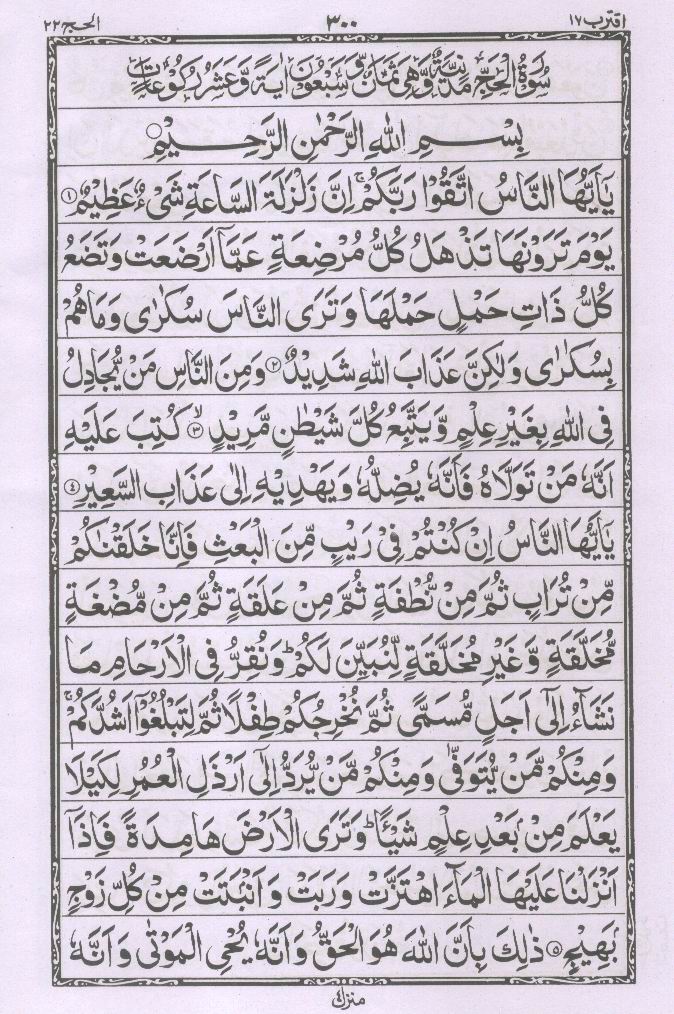 اقترب ۱۷ ۳۰۰ الحج ۲۲
سُوْرَةُ الْحَجِّ مَدَنِيَّةٌ وَّهِيَ ثَمَانٌ وَّسَبْعُوْنَ اٰيَةً وَّعَشَرُ رُكُوْعَاتٍ
بِسْمِ اللّٰهِ الرَّحْمٰنِ الرَّحِيْمِ
يٰۤاَيُّهَا النَّاسُ اتَّقُوْا رَبَّكُمْ ۚ اِنَّ زَلْزَلَةَ السَّاعَةِ شَيْءٌ عَظِيْمٌ ۱
يَوْمَ تَرَوْنَهَا تَذْهَلُ كُلُّ مُرْضِعَةٍ عَمَّاۤ اَرْضَعَتْ وَتَضَعُ
كُلُّ ذَاتِ حَمْلٍ حَمْلَهَا وَتَرَى النَّاسَ سُكٰرٰى وَمَا هُمْ
بِسُكٰرٰى وَلٰكِنَّ عَذَابَ اللّٰهِ شَدِيْدٌ ۲ وَمِنَ النَّاسِ مَنْ يُّجَادِلُ
فِى اللّٰهِ بِغَيْرِ عِلْمٍ وَّيَتَّبِعُ كُلَّ شَيْطٰنٍ مَّرِيْدٍ ۙ ۳ كُتِبَ عَلَيْهِ
اَنَّهٗ مَنْ تَوَلَّاهُ فَاَنَّهٗ يُضِلُّهٗ وَيَهْدِيْهِ اِلٰى عَذَابِ السَّعِيْرِ ٤
يٰۤاَيُّهَا النَّاسُ اِنْ كُنْتُمْ فِيْ رَيْبٍ مِّنَ الْبَعْثِ فَاِنَّا خَلَقْنٰكُمْ
مِّنْ تُرَابٍ ثُمَّ مِنْ نُّطْفَةٍ ثُمَّ مِنْ عَلَقَةٍ ثُمَّ مِنْ مُّضْغَةٍ
مُّخَلَّقَةٍ وَّغَيْرِ مُخَلَّقَةٍ لِّنُبَيِّنَ لَكُمْ ؕ وَنُقِرُّ فِى الْاَرْحَامِ مَا
نَشَآءُ اِلٰۤى اَجَلٍ مُّسَمًّى ثُمَّ نُخْرِجُكُمْ طِفْلًا ثُمَّ لِتَبْلُغُوْۤا اَشُدَّكُمْ ۚ
وَمِنْكُمْ مَّنْ يُّتَوَفّٰى وَمِنْكُمْ مَّنْ يُّرَدُّ اِلٰۤى اَرْذَلِ الْعُمُرِ لِكَيْلَا
يَعْلَمَ مِنْۢ بَعْدِ عِلْمٍ شَيْـًٔا ؕ وَتَرَى الْاَرْضَ هَامِدَةً فَاِذَاۤ
اَنْزَلْنَا عَلَيْهَا الْمَآءَ اهْتَزَّتْ وَرَبَتْ وَاَنْۢبَتَتْ مِنْ كُلِّ زَوْجٍۢ
بَهِيْجٍ ۵ ذٰلِكَ بِاَنَّ اللّٰهَ هُوَ الْحَقُّ وَاَنَّهٗ يُحْيِ الْمَوْتٰى وَاَنَّهٗ
منزل ٤